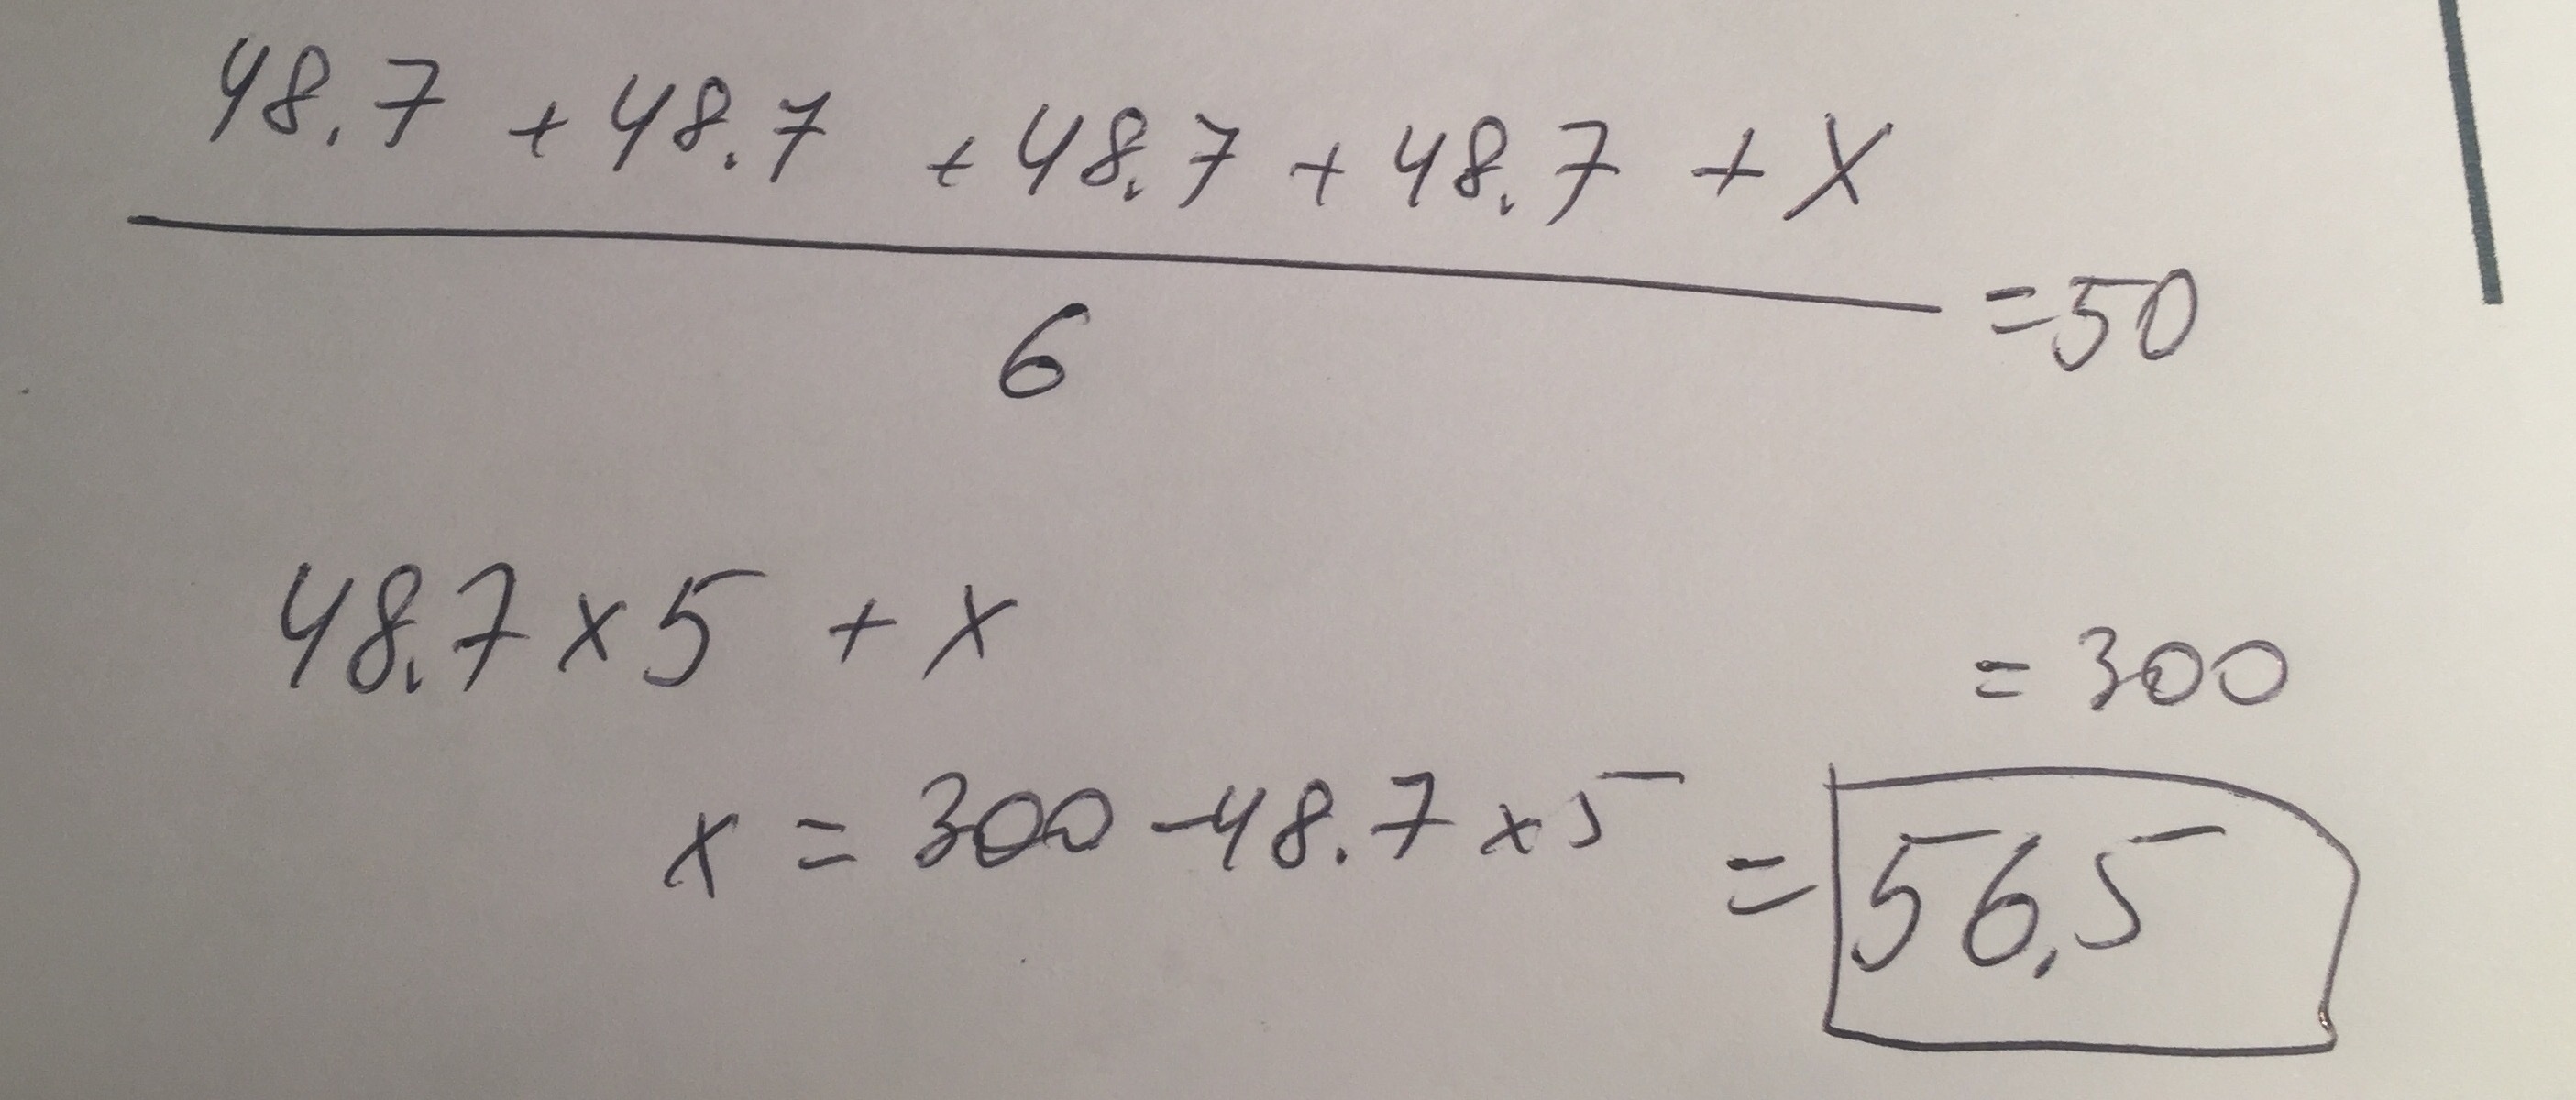 48.7 + 48.7 + 48.7 + 48.7 + X
6
=50
48.7 x 5 + x = 300
x = 300 - 48.7 x 5 = 56.5